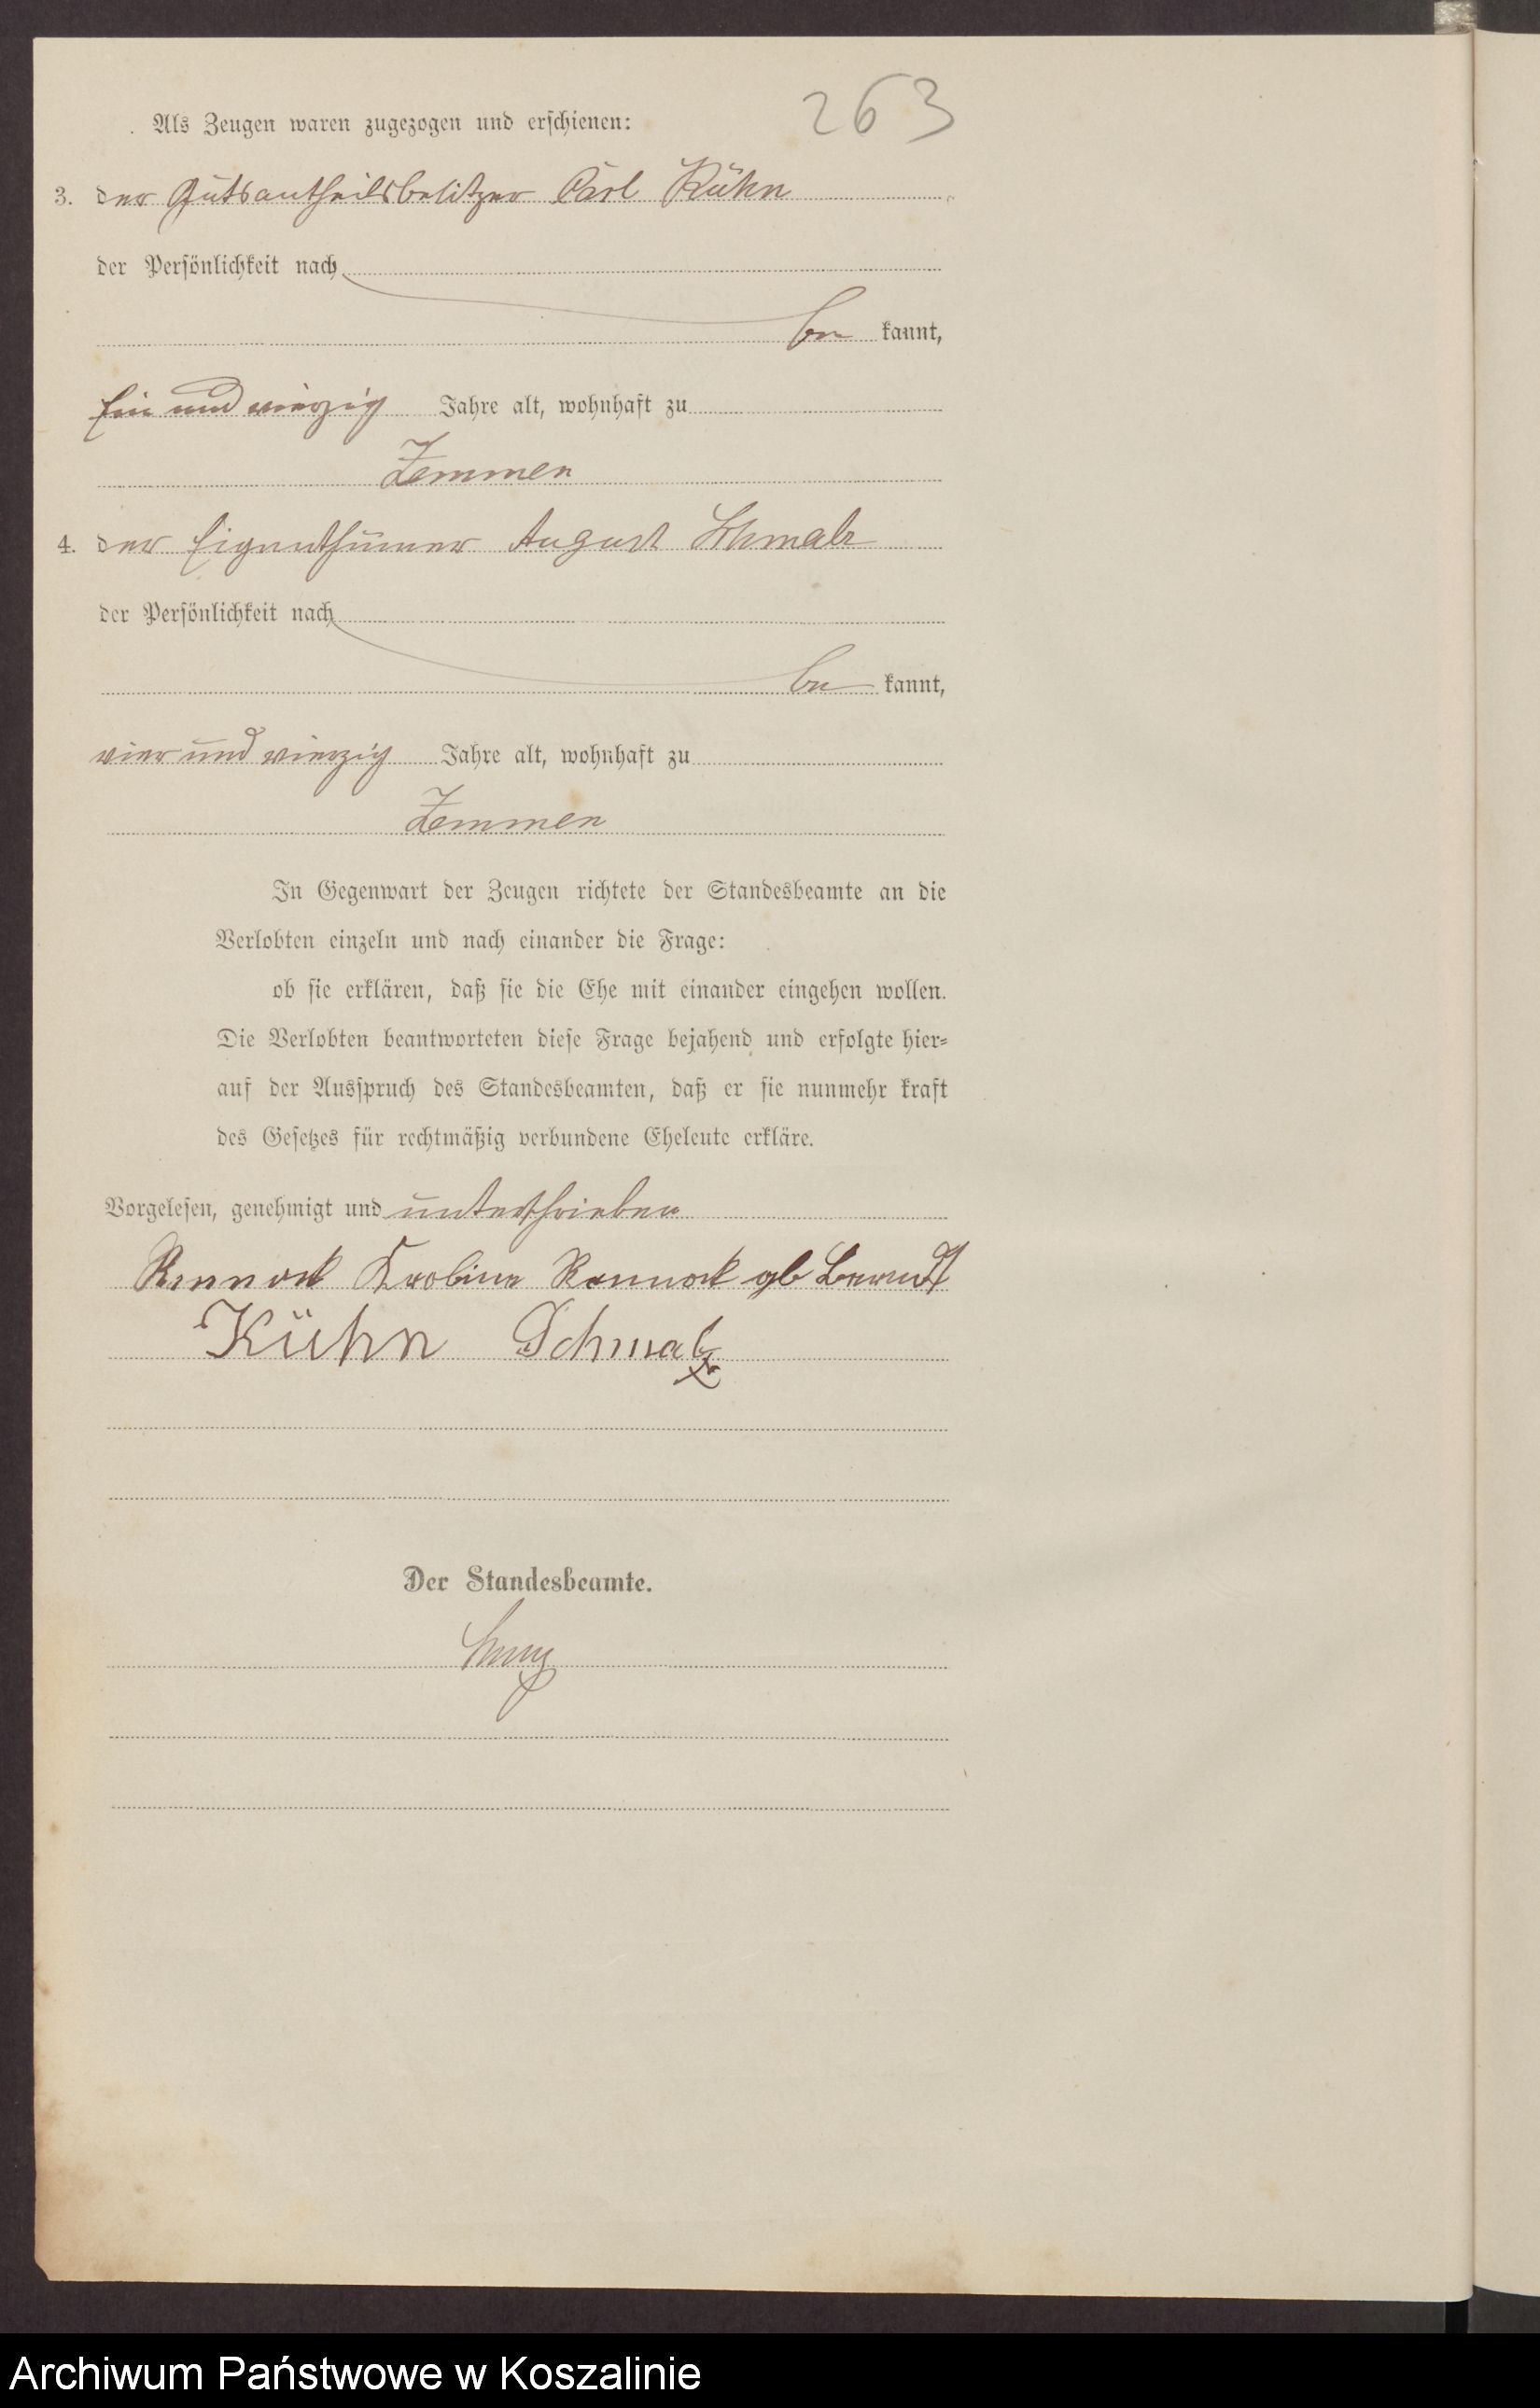 263
Als Zeugen waren zugezogen und erschienen:
3. der Gutsantheilsbesitzer Carl Kühn
der Persönlichkeit nach
be kannt,
ein und vierzig Jahre alt, wohnhaft zu
Zemmen
4. der Eigenthümer August Schmalz
der Persönlichkeit nach
be kannt,
vier und vierzig Jahre alt, wohnhaft zu
Zemmen
In Gegenwart der Zeugen richtete der Standesbeamte an die
Verlobten einzeln und nach einander die Frage:
ob sie erklären, daß sie die Ehe mit einander eingehen wollen.
Die Verlobten beantworteten diese Frage bejahend und erfolgte hier=
auf der Ausspruch des Standesbeamten, daß er sie nunmehr kraft
des Gesetzes für rechtmäßig verbundene Eheleute erkläre.
Vorgelesen, genehmigt und unterschrieben
gb
Kühn Schmalz
Der Standesbeamte.
Archiwum Państwowe w Koszalinie